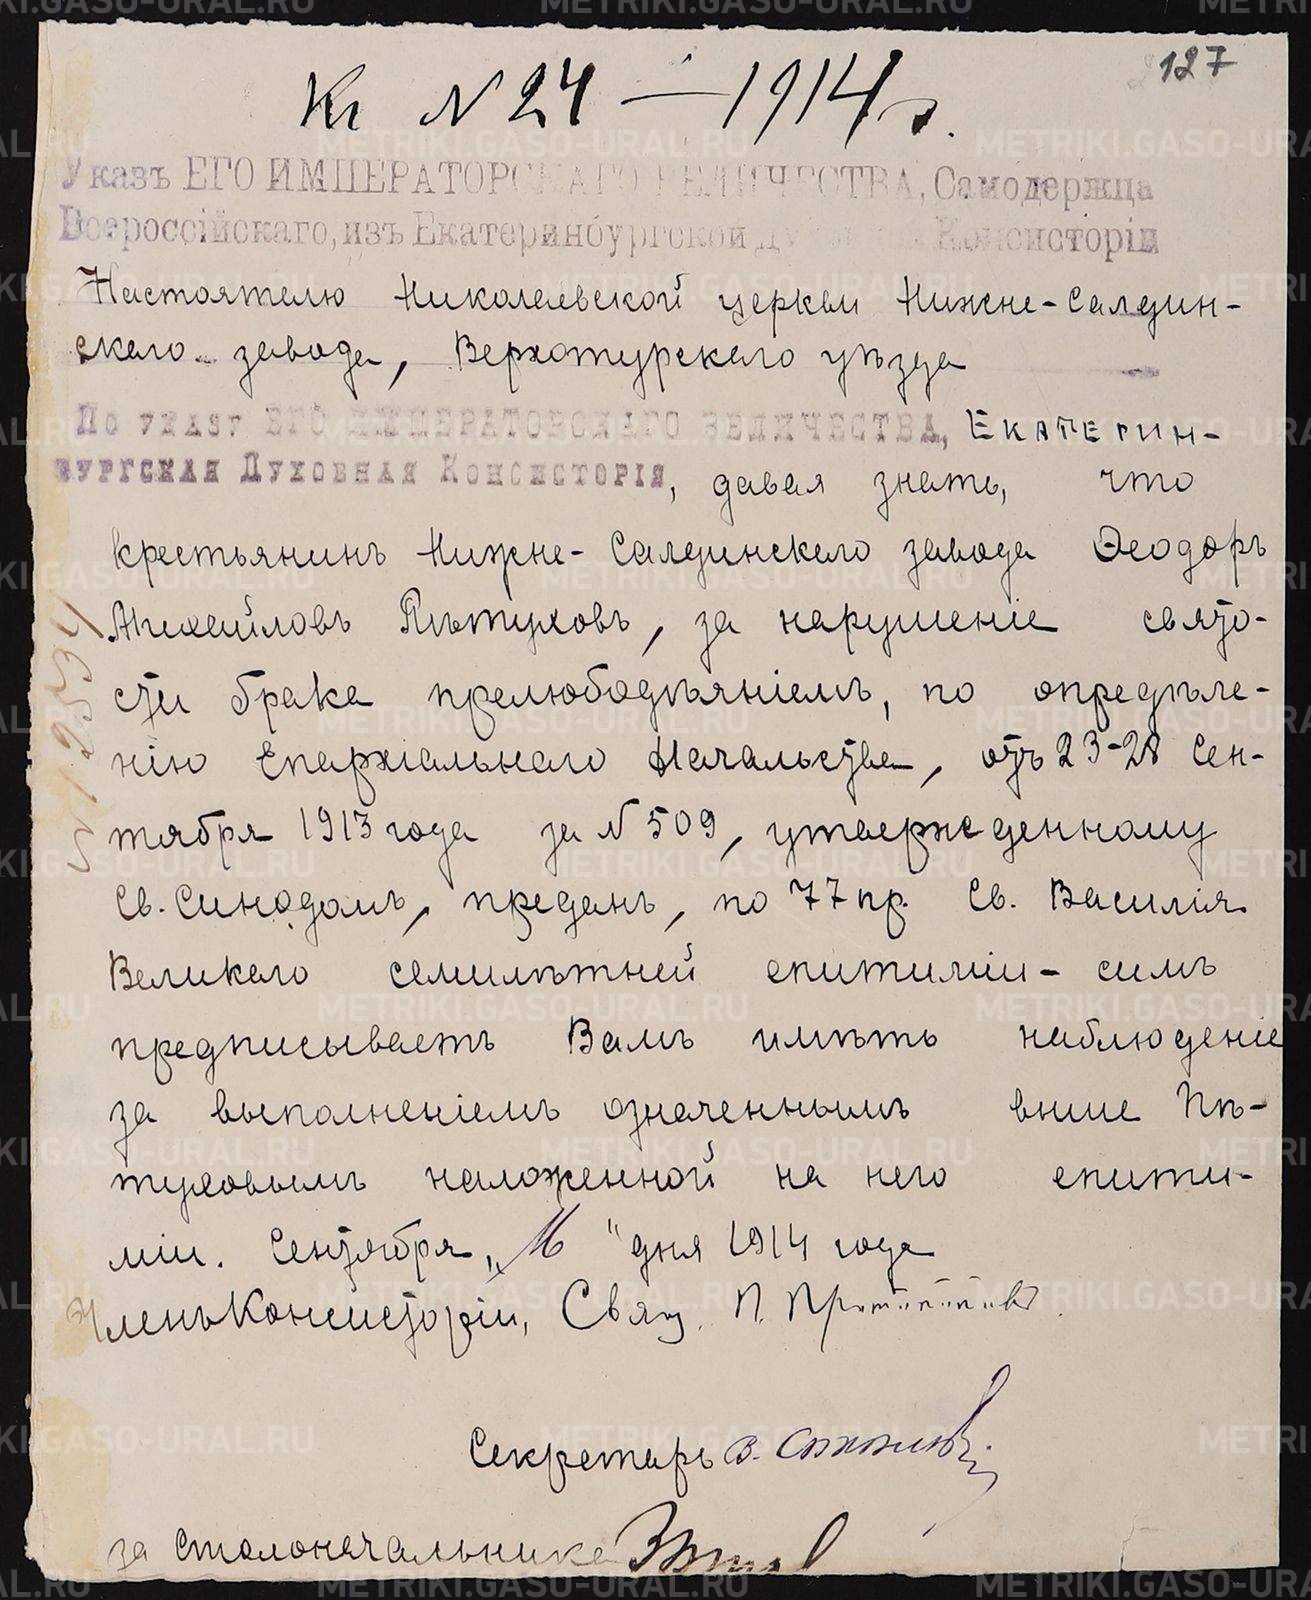 127
Къ № 24 — 1914 г.
Указъ ЕГО ИМПЕРАТОРСКАГО ВЕЛИЧЕСТВА, Самодержца
Всероссійскаго, изъ Екатеринбургской Духовной Консисторіи
Настоятелю Николаевской церкви Нижне-Салдин-
скаго завода, Верхотурскаго уѣзда
По указу ЕГО ИМПЕРАТОРСКАГО ВЕЛИЧЕСТВА, ЕКАТЕРИН-
БУРГСКАЯ ДУХОВНАЯ КОНСИСТОРІЯ, давая знать, что
крестьянинъ Нижне-Салдинскаго завода Ѳеодоръ
Михайловъ Пѣтуховъ, за нарушеніе свято-
сти брака прелюбодѣяніемъ, по опредѣле-
нію Епархіальнаго Начальства, отъ 23-28 Сен-
тября 1913 года за № 509, утвержденному
Св. Синодомъ, преданъ, по 77 пр. Св. Василія
Великаго семилѣтней епитиміи - симъ
предписываетъ Вамъ имѣть наблюденіе
за выполненіемъ означеннымъ выше Пѣ-
туховымъ наложенной на него епити-
міи. Сентября „16" дня 1914 года
Членъ Консисторіи, Свящ. П.
Секретарь В.
за Столоначальника
№ 12554
METRIKI.GASO-URAL.RU